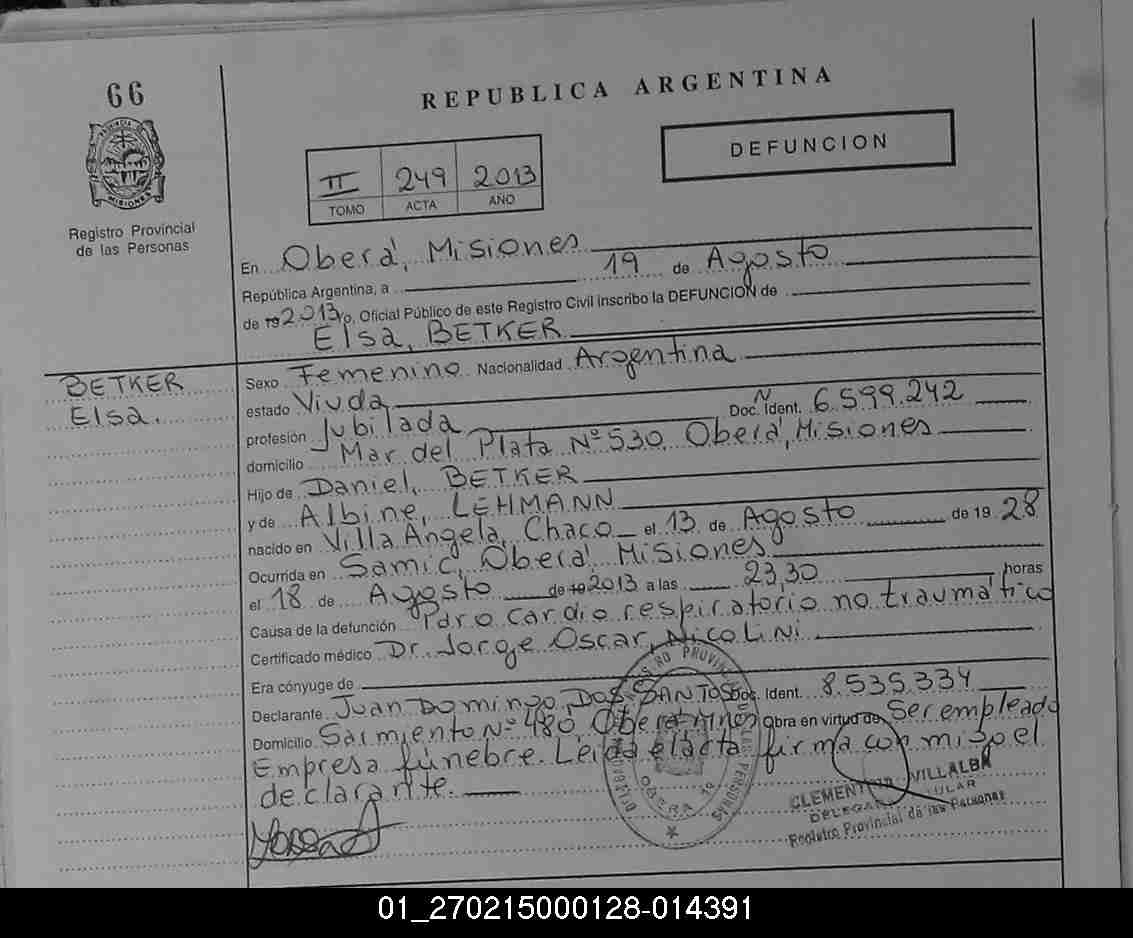 66
REPUBLICA ARGENTINA
PROVINCIA
MISIONES
Registro Provincial
de las Personas
II 249 2013
TOMO ACTA AÑO
DEFUNCION
En Oberá, Misiones
República Argentina, a 19 de Agosto
de 19 2013 yo, Oficial Público de este Registro Civil inscribo la DEFUNCION de
Elsa, BETKER
BETKER
Elsa.
Sexo Femenino Nacionalidad Argentina
estado Viuda
profesión Jubilada Doc. Ident. Nº 6.599.242
domicilio Mar del Plata Nº 530, Oberá, Misiones
Hijo de Daniel, BETKER
y de Albine, LEHMANN
nacido en Villa Angela, Chaco el 13 de Agosto de 19 28
Ocurrida en Samic, Oberá Misiones
el 18 de Agosto de 19 2013 a las 23,30 horas
Causa de la defunción Paro cardio respiratorio no traumático
Certificado médico Dr. Jorge Oscar, NICOLINI
Era cónyuge de
Declarante Juan Domingo, DOS SANTOS Doc. Ident. 8.535.334
Domicilio Sarmiento Nº 480, Oberá Mnes Obra en virtud de Ser empleado
Empresa fúnebre. Leida el acta firma con migo el
declarante.
REGISTRO PROVINCIAL DE LAS PERSONAS
OBERA
CLEMENTINA VILLALBA
DELEGADA TITULAR
Registro Provincial de las Personas
01_270215000128-014391